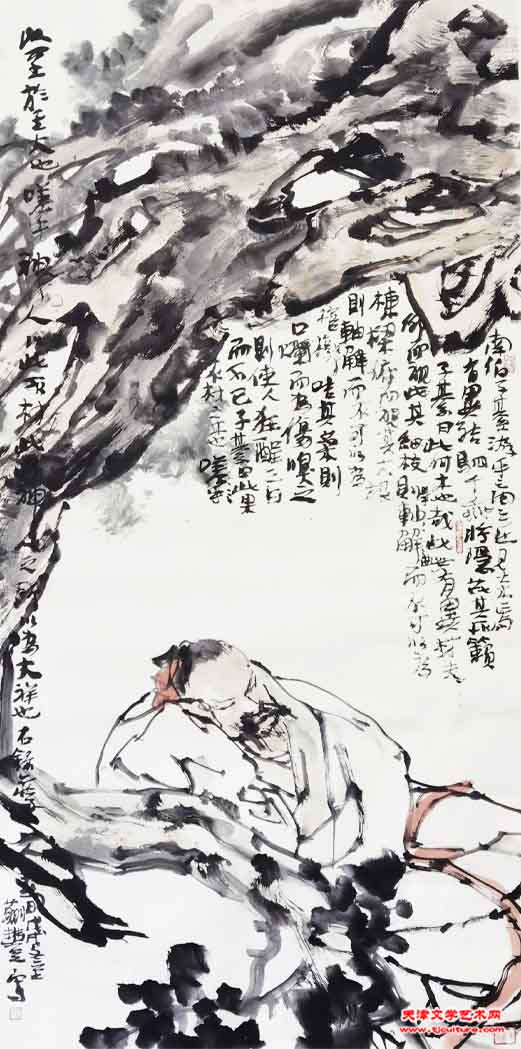 南伯子綦游乎商之丘見大木焉
有異結駟千乘將隱芘其所籟
子綦曰此何木也哉此必有異材夫
仰而視其細枝則軸解而不可以為
棟樑俯而視其大根
則軸解而不可以為
棺槨咶其葉則
口爛而為傷嗅之
則使人狂酲三日
而不已子綦曰此果
不材之木也嗟乎
此至於至大也嗟乎神人以此不材此神人之所以為大祥也右錄莊子
寫
天津文学艺术网
www.tjculture.com